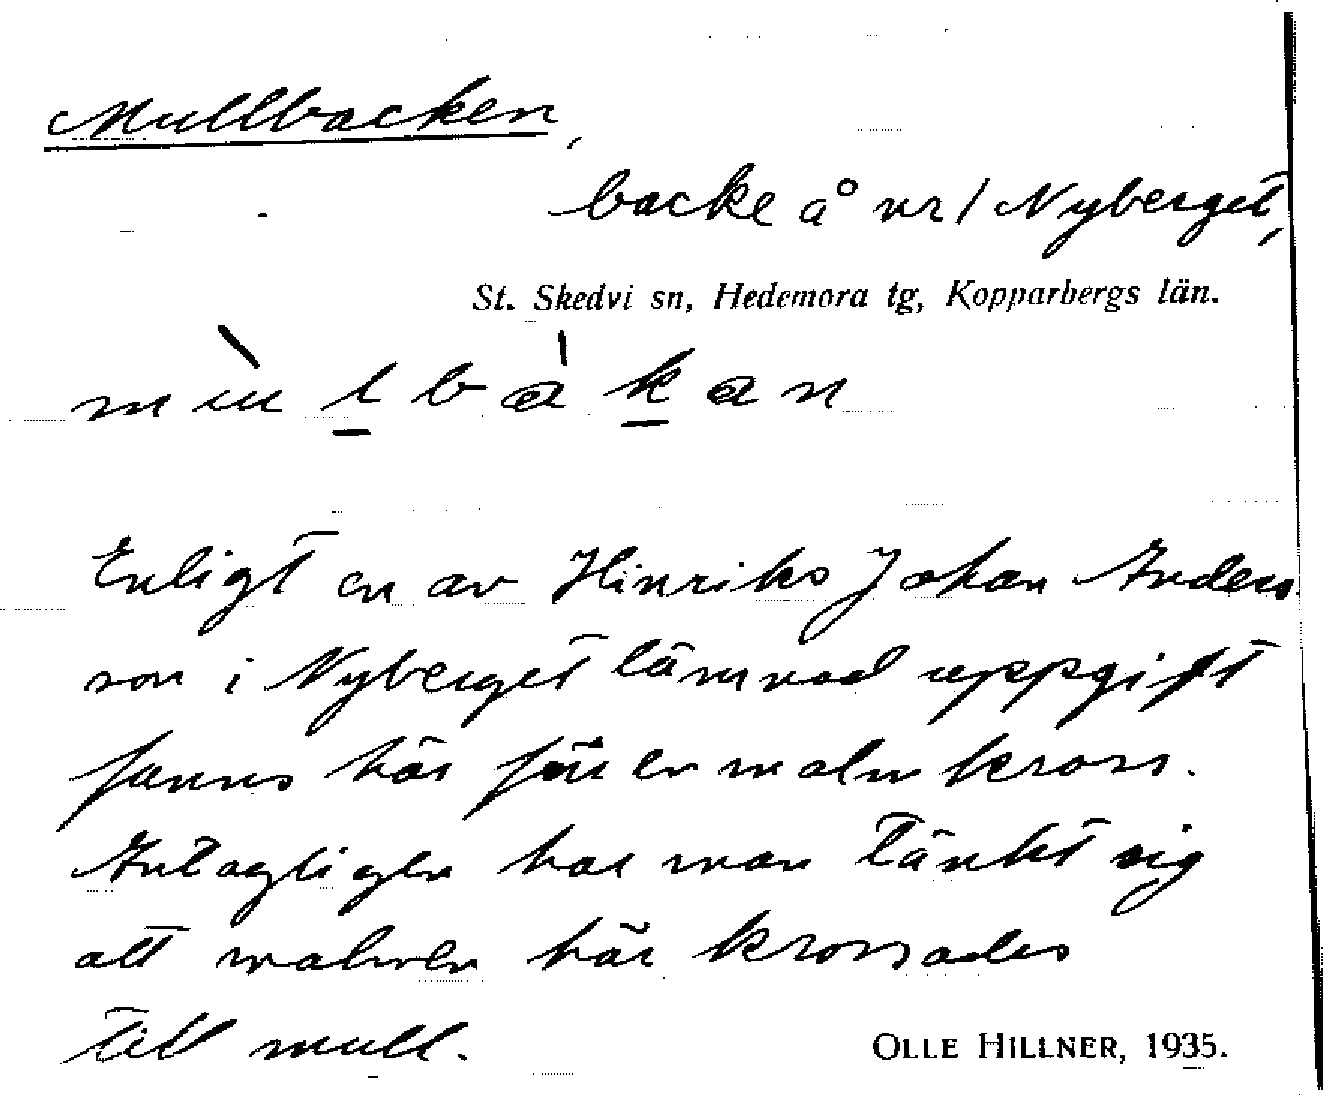 Mullbacken,
backe å nr 1 Nyberget,
St. Skedvi sn, Hedemora tg, Kopparbergs län.
Enligt en av Hinriks Johan Anders
son i Nyberget lämnad uppgift
fanns här förr en malmkross.
Antagligen har man tänkt sig
att malmen här krossades
till mull.
OLLE HILLNER, 1935.